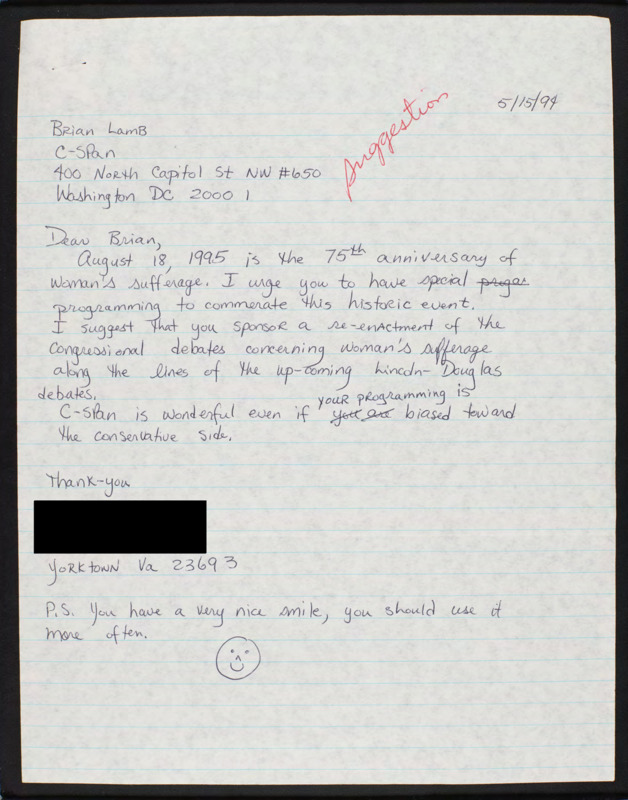 5/15/94
suggestion
Brian Lamb
C-Span
400 North Capitol St NW #650
Washington DC 20001
Dear Brian,
August 18, 1995 is the 75th anniversary of
woman's sufferage. I urge you to have special progas
programming to commerate this historic event.
I suggest that you sponsor a re-enactment of the
Congressional debates concerning woman's sufferage
along the lines of the up-coming Lincoln-Douglas
debates.
C-Span is wonderful even if you are your programming is biased toward
the conservative side.
Thank-you
Yorktown Va 23693
P.S. You have a very nice smile, you should use it
more often.